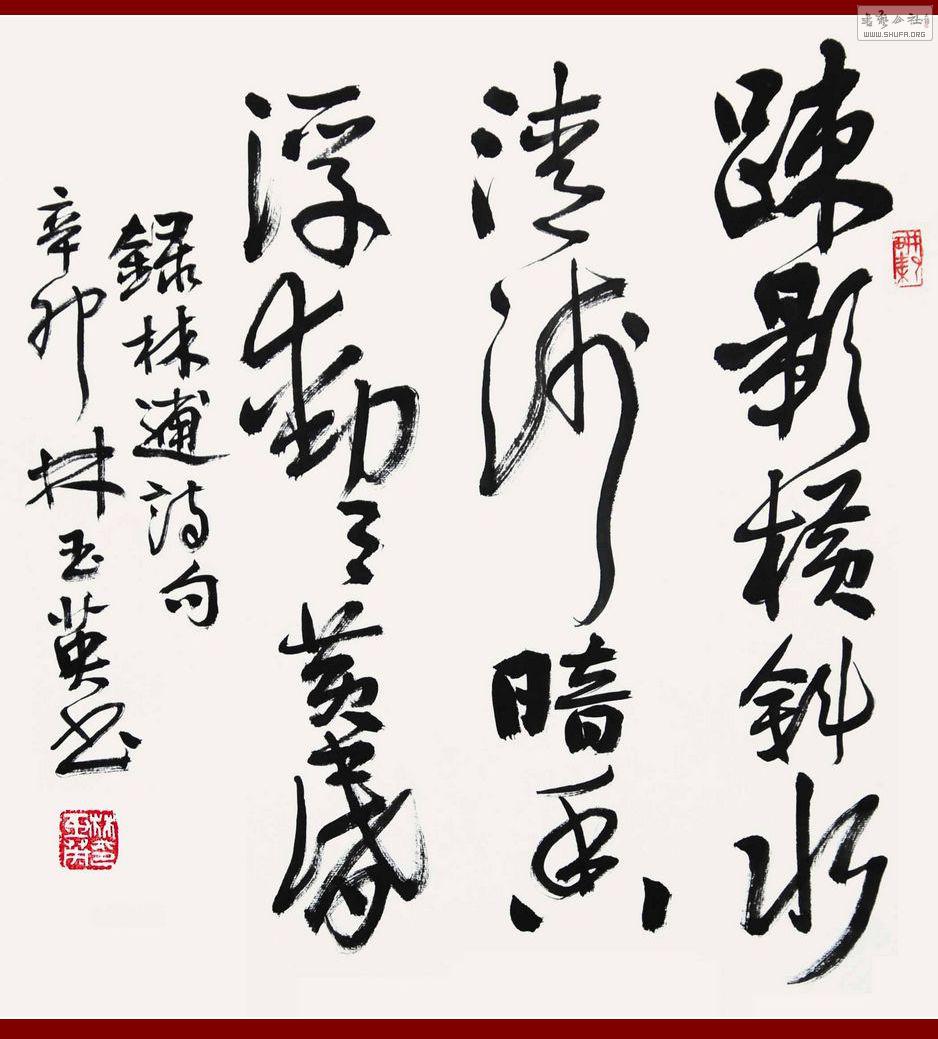 踈影横斜水
清淺暗香
浮動月黄昏
録林逋詩句
辛卯林玉英书
书艺公社
WWW.SHUFA.ORG